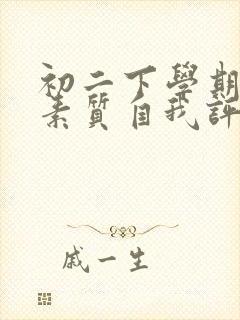 初二下學期
素質自我評
戚一生